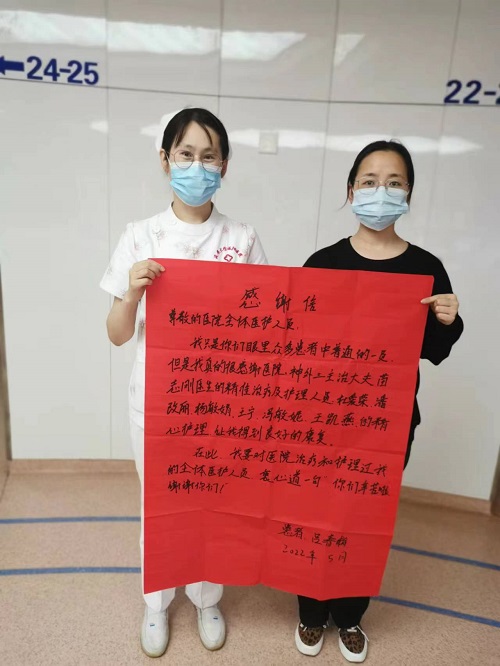 24-25
22-2
感谢信
尊敬的医院全体医护人员:
我只是你们眼里众多患者中普通的一员,
但是我真的很感谢医院,神外二主治大夫苗
志刚医生的精准治疗及护理人员杜荣荣 潘
改丽、杨敏娟、王宁、冯敏妮、王凯燕的精
心护理 让我得到良好的康复。
在此,我要对医院治疗和护理过我
的全体医护人员 衷心道一句"你们辛苦啦
谢谢你们!
患者:吕香
2022年 5月